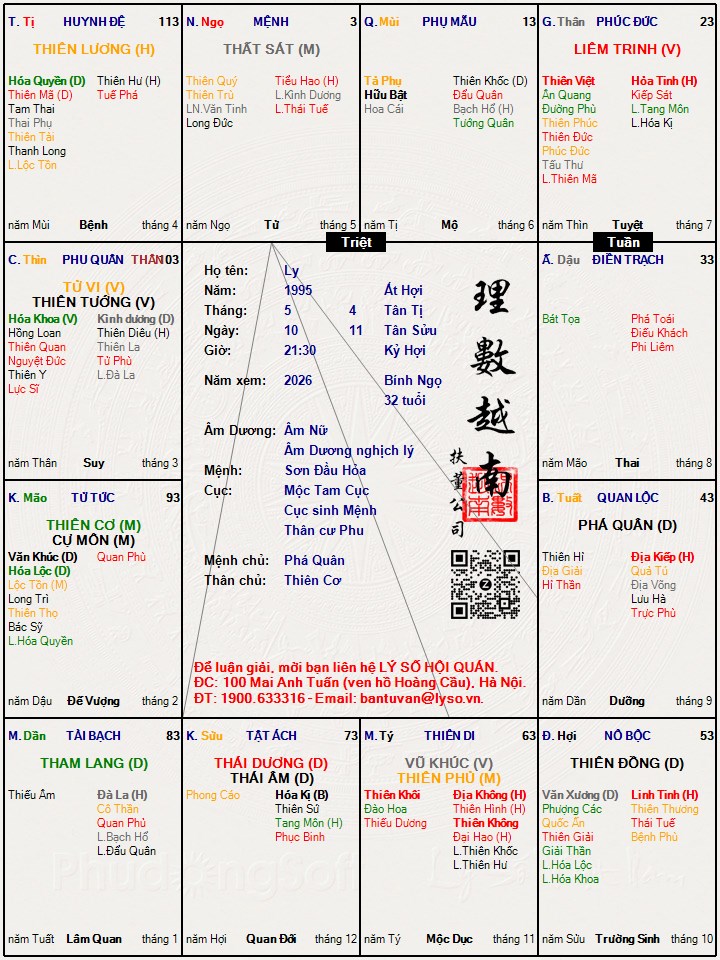 T. Tị HUYNH ĐỆ 113
THIÊN LƯƠNG (H)
Hóa Quyền (D) Thiên Hư (H)
Thiên Mã (D) Tuế Phá
Tam Thai
Thai Phụ
Thiên Tài
Thanh Long
L.Lộc Tồn
năm Mùi Bệnh tháng 4
N. Ngọ MỆNH 3
THẤT SÁT (M)
Thiên Quý Tiểu Hao (H)
Thiên Trù L.Kình Dương
LN.Văn Tinh L.Thái Tuế
Long Đức
năm Ngọ Tử tháng 5
Q. Mùi PHỤ MẪU 13
Tả Phụ Thiên Khốc (D)
Hữu Bật Đẩu Quân
Hoa Cái Bạch Hổ (H)
Tướng Quân
năm Tị Mộ tháng 6
G. Thân PHÚC ĐỨC 23
LIÊM TRINH (V)
Thiên Việt Hỏa Tinh (H)
Ân Quang Kiếp Sát
Đường Phù L.Tang Môn
Thiên Phúc L.Hóa Kị
Thiên Đức
Phúc Đức
Tấu Thư
L.Thiên Mã
năm Thìn Tuyệt tháng 7
Triệt
Tuần
C. Thìn PHU QUÂN THÂN 103
TỬ VI (V)
THIÊN TƯỚNG (V)
Hóa Khoa (V) Kình dương (D)
Hồng Loan Thiên Diêu (H)
Thiên Quan Thiên La
Nguyệt Đức Tử Phù
Thiên Y L.Đà La
Lực Sĩ
năm Thân Suy tháng 3
Họ tên: Ly
Năm: 1995 Ất Hợi
Tháng: 5 4 Tân Tị
Ngày: 10 11 Tân Sửu
Giờ: 21:30 Kỷ Hợi
Năm xem: 2026 Bính Ngọ
32 tuổi
Âm Dương: Âm Nữ
Âm Dương nghịch lý
Mệnh: Sơn Đầu Hỏa
Cục: Mộc Tam Cục
Cục sinh Mệnh
Thân cư Phu
Mệnh chủ: Phá Quân
Thân chủ: Thiên Cơ
理數越南
扶董公司
Để luận giải, mời bạn liên hệ LÝ SỐ HỘI QUÁN.
ĐC: 100 Mai Anh Tuấn (ven hồ Hoàng Cầu), Hà Nội.
ĐT: 1900.633316 - Email: bantuvan@lyso.vn.
Ấ. Dậu ĐIỀN TRẠCH 33
Bát Tọa Phá Toái
Điếu Khách
Phi Liêm
năm Mão Thai tháng 8
K. Mão TỬ TỨC 93
THIÊN CƠ (M)
CỰ MÔN (M)
Văn Khúc (D) Quan Phù
Hóa Lộc (D)
Lộc Tồn (M)
Long Trì
Thiên Thọ
Bác Sỹ
L.Hóa Quyền
năm Dậu Đế Vượng tháng 2
B. Tuất QUAN LỘC 43
PHÁ QUÂN (D)
Thiên Hỉ Địa Kiếp (H)
Địa Giải Quả Tú
Hỉ Thần Địa Võng
Lưu Hà
Trực Phù
năm Dần Dưỡng tháng 9
M. Dần TÀI BẠCH 83
THAM LANG (D)
Thiếu Âm Đà La (H)
Cô Thần
Quan Phủ
L.Bạch Hổ
L.Đẩu Quân
năm Tuất Lâm Quan tháng 1
K. Sửu TẬT ÁCH 73
THÁI DƯƠNG (D)
THÁI ÂM (D)
Phong Cáo Hóa Kị (B)
Thiên Sứ
Tang Môn (H)
Phục Binh
năm Hợi Quan Đới tháng 12
M. Tý THIÊN DI 63
VŨ KHÚC (V)
THIÊN PHỦ (M)
Thiên Khôi Địa Không (H)
Đào Hoa Thiên Hình (H)
Thiếu Dương Thiên Không
Đại Hao (H)
L.Thiên Khốc
L.Thiên Hư
năm Tý Mộc Dục tháng 11
Đ. Hợi NÔ BỘC 53
THIÊN ĐỒNG (D)
Văn Xương (D) Linh Tinh (H)
Phượng Các Thiên Thương
Quốc Ấn Thái Tuế
Thiên Giải Bệnh Phù
Giải Thần
L.Hóa Lộc
L.Hóa Khoa
năm Sửu Trường Sinh tháng 10